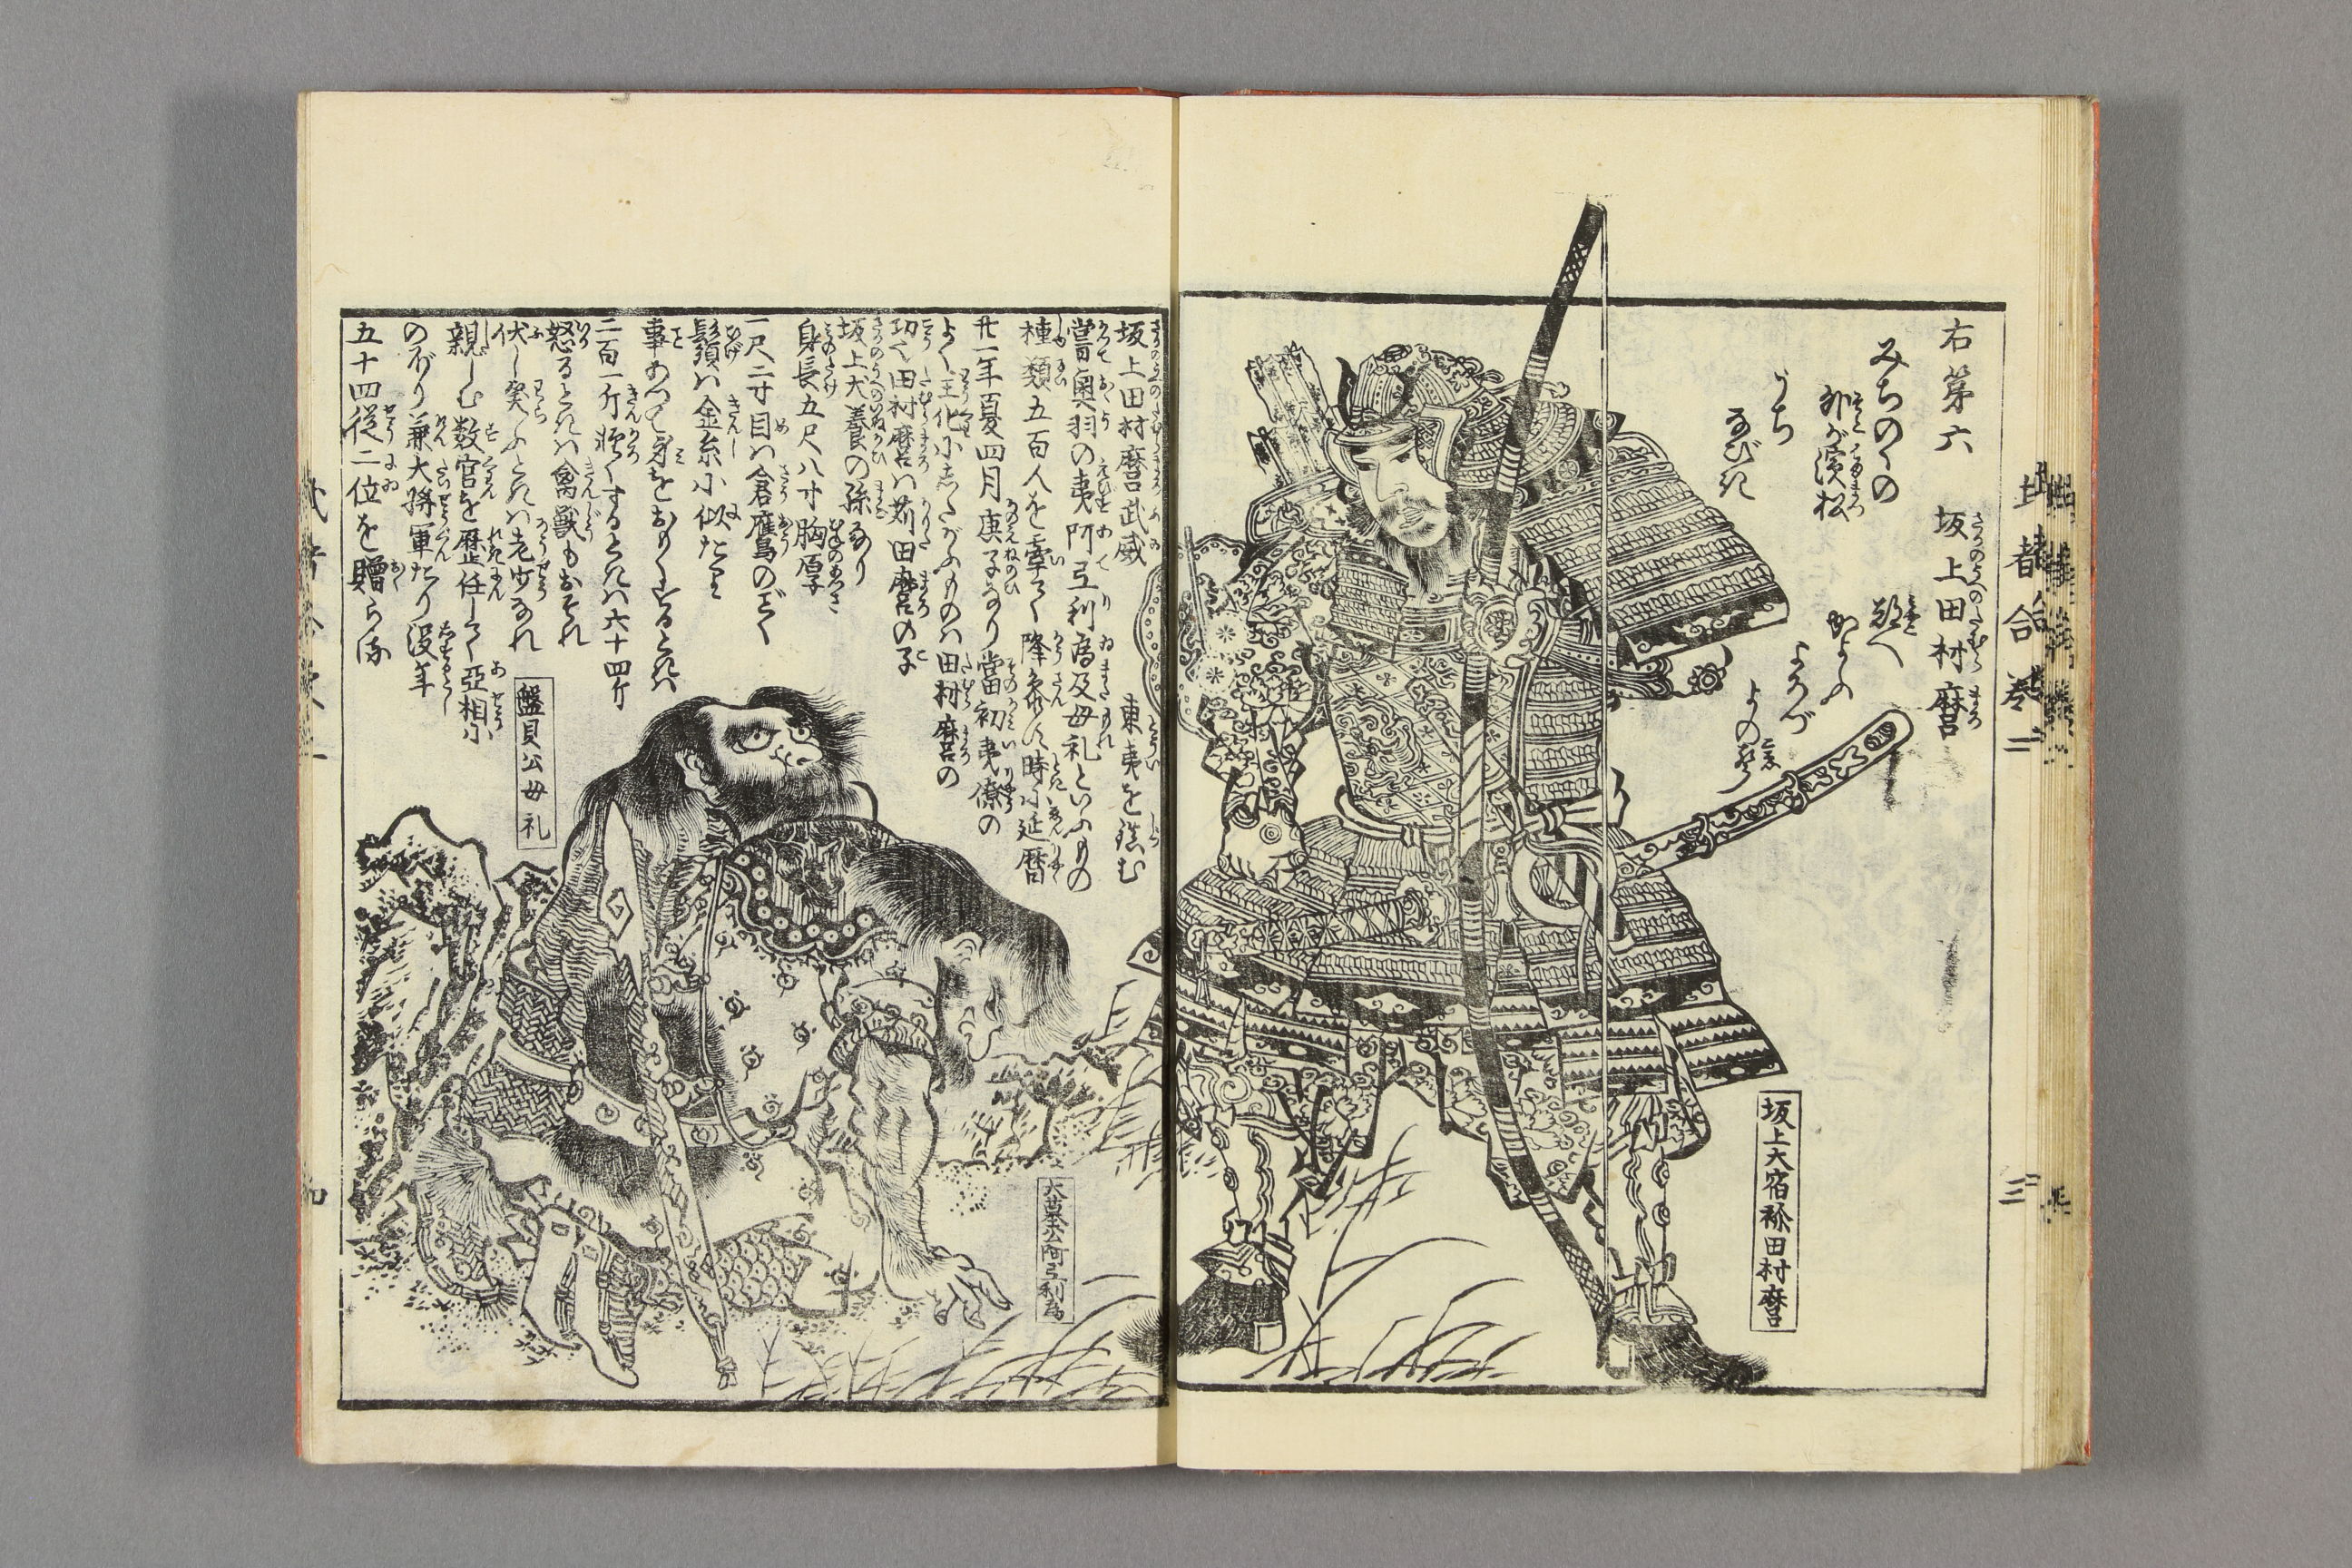 右第六　坂上田村麿
みちのくの
外が濱松
うち
なびき
都へ
かよふ
よろづ
よの声
坂上大宿祢田村麿
坂上田村麿武威　東夷を鎮む
嘗奥羽の夷阿弖利為及母礼といふもの
種類五百人を率て降参ス時に延暦
廿一年夏四月庚子なり當初夷僚の
よく王化にしたがふものハ田村麿の
功也田村麿ハ苅田麿の子
坂上犬養の孫なり
身長五尺八寸胸厚
一尺二寸目ハ倉鷹のごとく
鬚ハ金糸に似たり
事あつて身をおもくするときハ
二百一斤軽くするときハ六十四斤
怒るときハ禽獣もおそれ
伏し笑ふときハ老少なれ
親しむ数官を歴任して亞相に
のぼり兼大将軍たり没年
五十四従二位を贈らる
盤具公母礼
大墓公阿弖利為